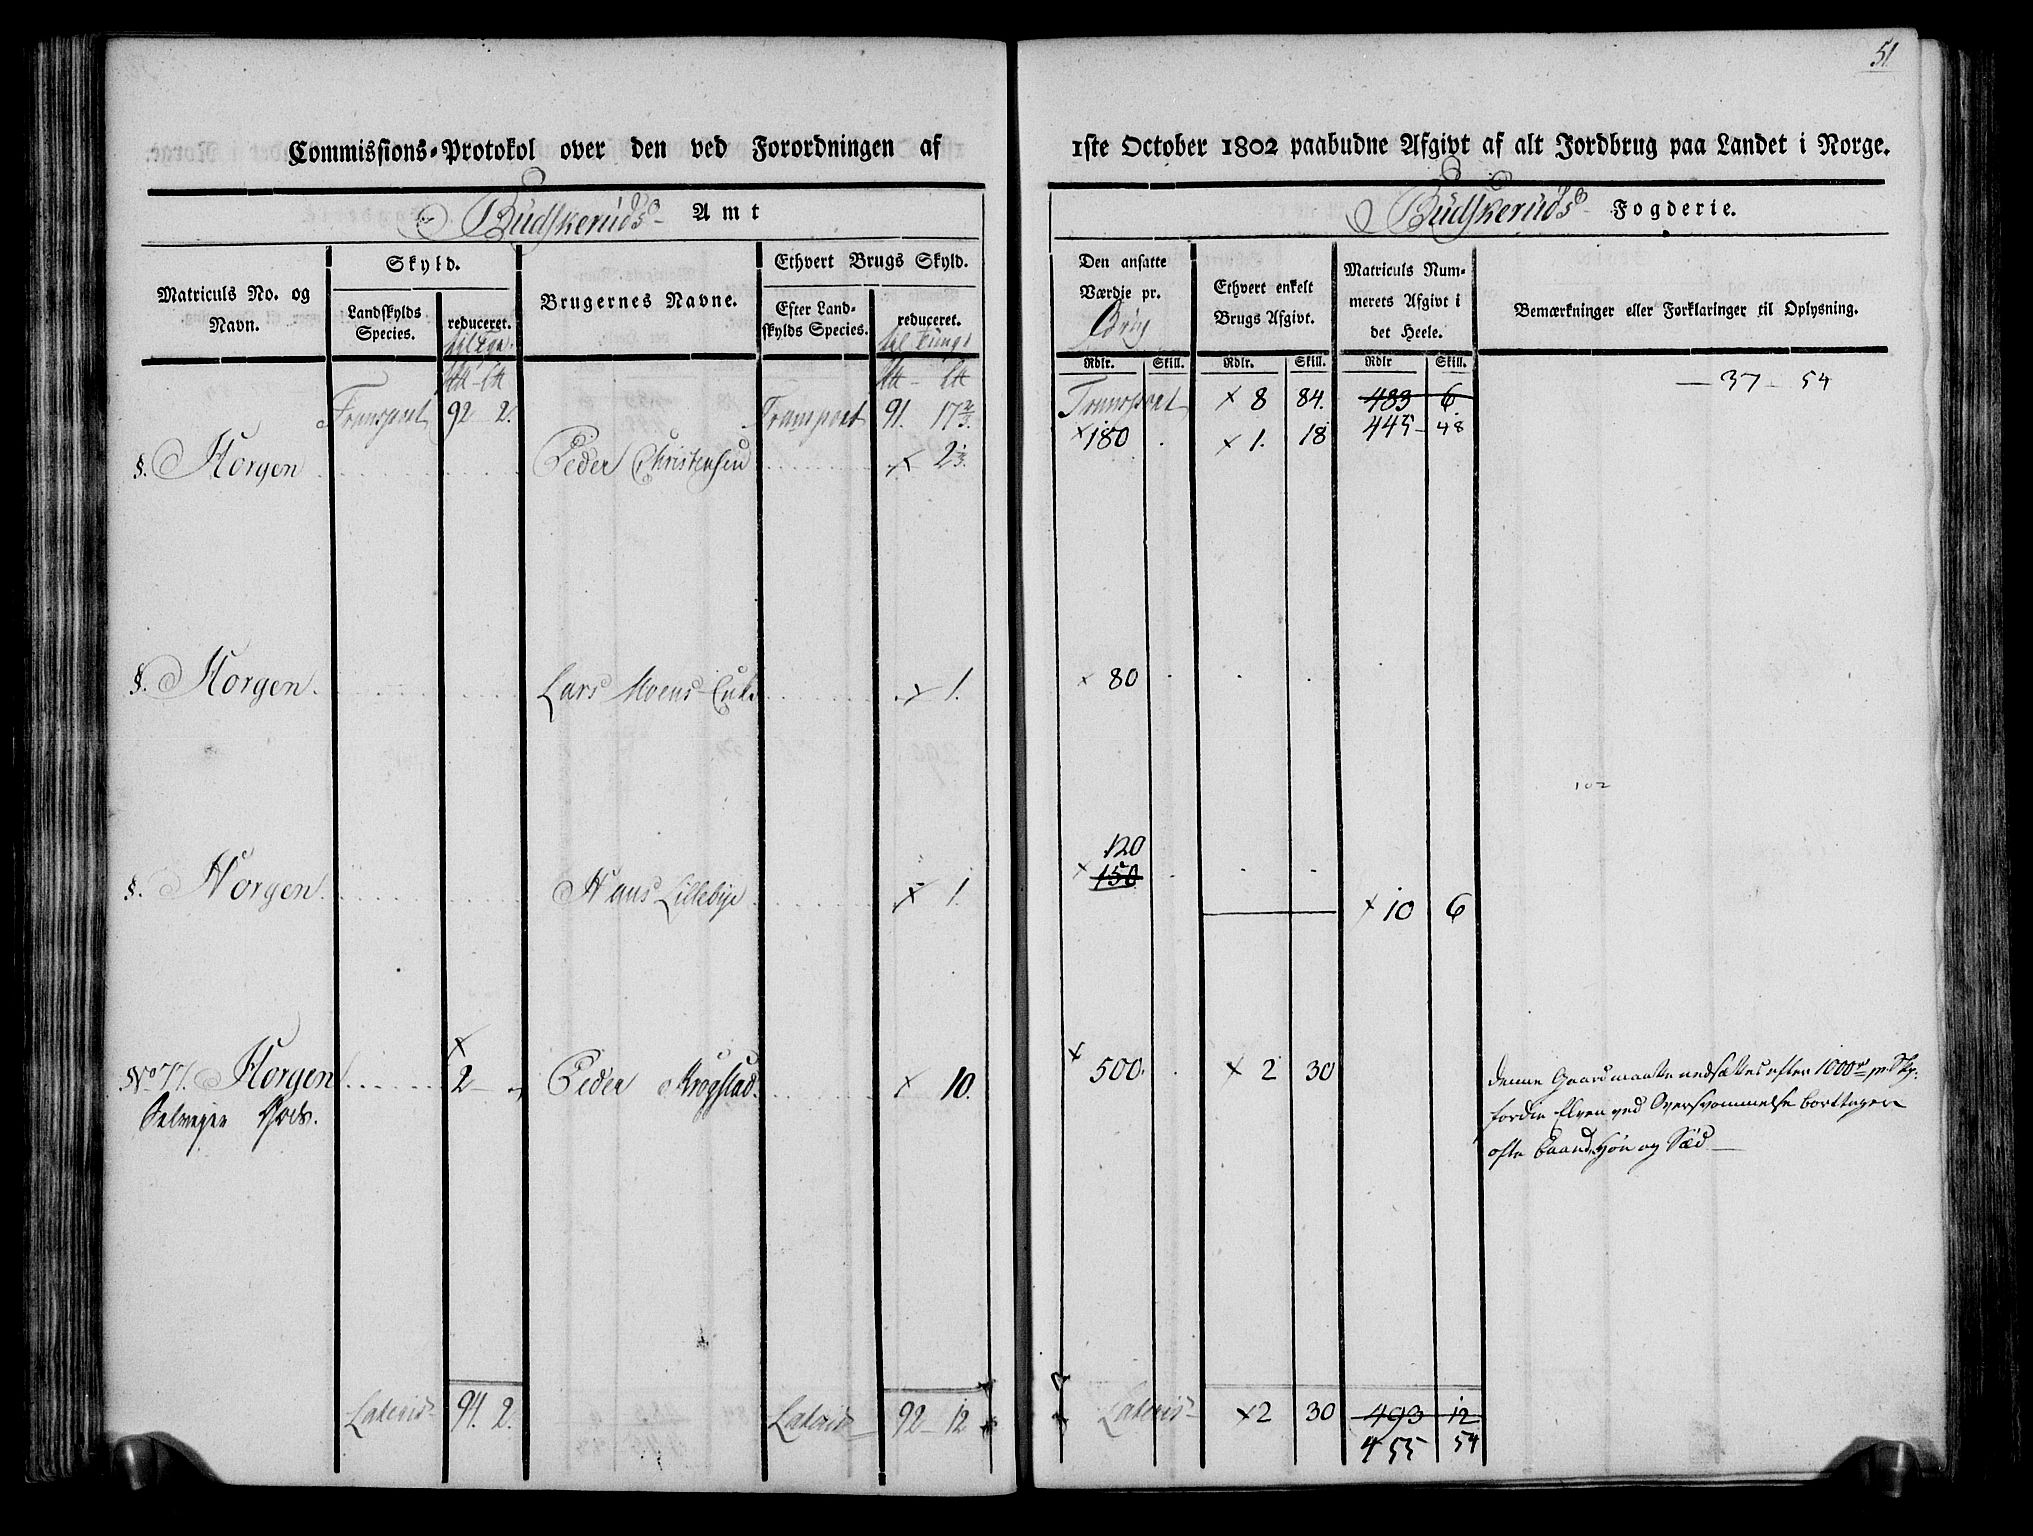 51
Commissions-Protokol over den ved Forordningen af
1ste October 1802 paabudne Afgivt af alt Jordbrug paa Landet i Norge.
Budskeruds Amt
Budskeruds Fogderie.
Matriculs No. og Navn.
Skyld.
Landskylds Species.
reduceret.
Brugernes Navne.
Ethvert Brugs Skyld.
Efter Landskylds Species.
reduceret. til Tunge
Den ansatte Værdie pr.
Ethvert enkelt Brugs Afgivt.
Matriculs Nummerets Afgivt i det Heele.
Bemærkninger eller Forklaringer til Oplysning.
Rdlr. Skill. Rdlr. Skill. Rdlr Skill.
Transport 92 2. Transport 91. 17 2/3. Transport x 8 84. 483 6 — 37 — 54
445 - 48
§. Horgen Peder Christensen x 2 1/3. x 180 x 1. 18
§. Horgen. Lars Moens Enke x 1. x 80
102
120
§. Horgen. Hans Lillebye x 1. x 150
x 10 6
No 77. Horgen x 2 — " Peder Krogstad. x 10. x 500. x 2 30 denne Gaard maatte nedsættes efter 1000
Selveyer Gods. fordi Elven ved Oversvømmelse borttager
ofte baand Høe og Sæd —
Lateris 94. 2. Lateris 92 — 12 Lateris x2 30 493 12
455 54